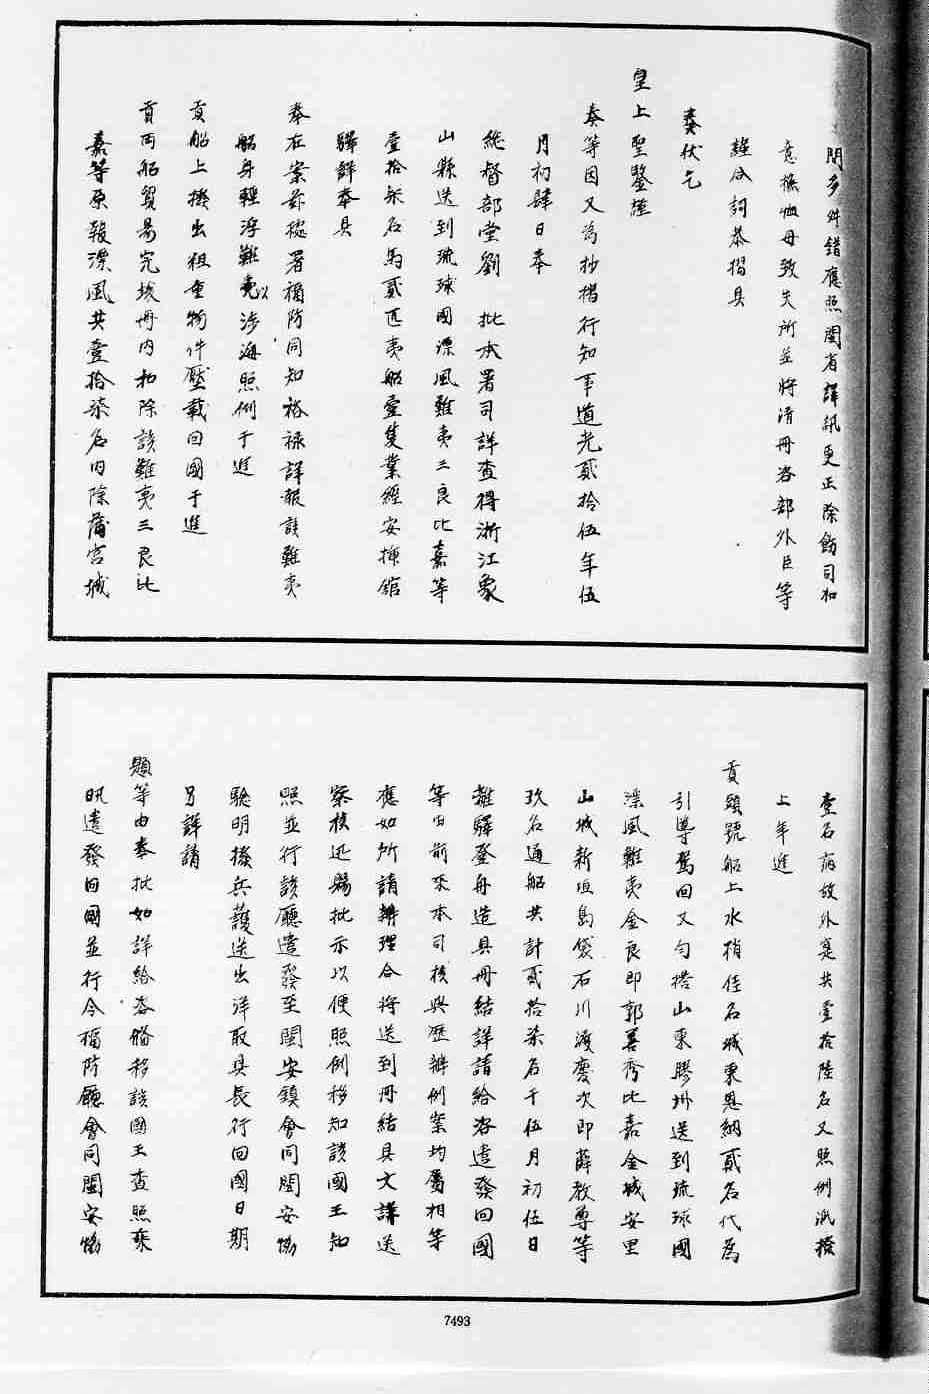 閒多舛錯應照閩省譯訊更正除飭司加
意撫恤毋致失所並將清冊咨部外臣等
謹合詞恭摺具
奏伏乞
皇上聖鑒謹
奏等因又為抄摺行知事道光貳拾伍年伍
月初肆日奉
總督部堂劉 批本署司詳查得浙江象
山縣送到琉球國漂風難夷三良比嘉等
壹拾柒名馬貳匹夷船壹隻業經安插館
驛詳奉具
奉在案茲據署福防同知裕祿詳報該難夷
船身輕浮難以涉海照例于進
貢船上撥出粗重物件壓載回國于進
貢両船貿易完竣冊內扣除該難夷三良比
嘉等原報漂風共壹拾柒名內除蒲宮城
壹名病故外寔共壹拾陸名又照例派撥
上年進
貢頭號船上水梢佳名城東恩納貳名代為
引導駕回又勻搭山東膠州送到琉球國
漂風難夷金良即郭善秀比嘉金城安里
山城新垣島袋石川渡慶次即薛教尊等
玖名通船共計貳拾柒名于伍月初伍日
離驛登舟造具冊結詳請給咨遣發回國
等由前來本司核與歷辦例案均屬相等
應如所請辦理合將送到冊結具文詳送
察核迅賜批示以便照例移知該國王知
照並行該廳遣發至閩安鎮會同閩安協
驗明撥兵護送出洋取具長行回國日期
另詳請
題等由奉批如詳給咨餙移該國王查照乘
汛遣發回國並行令福防廳會同閩安協
7493